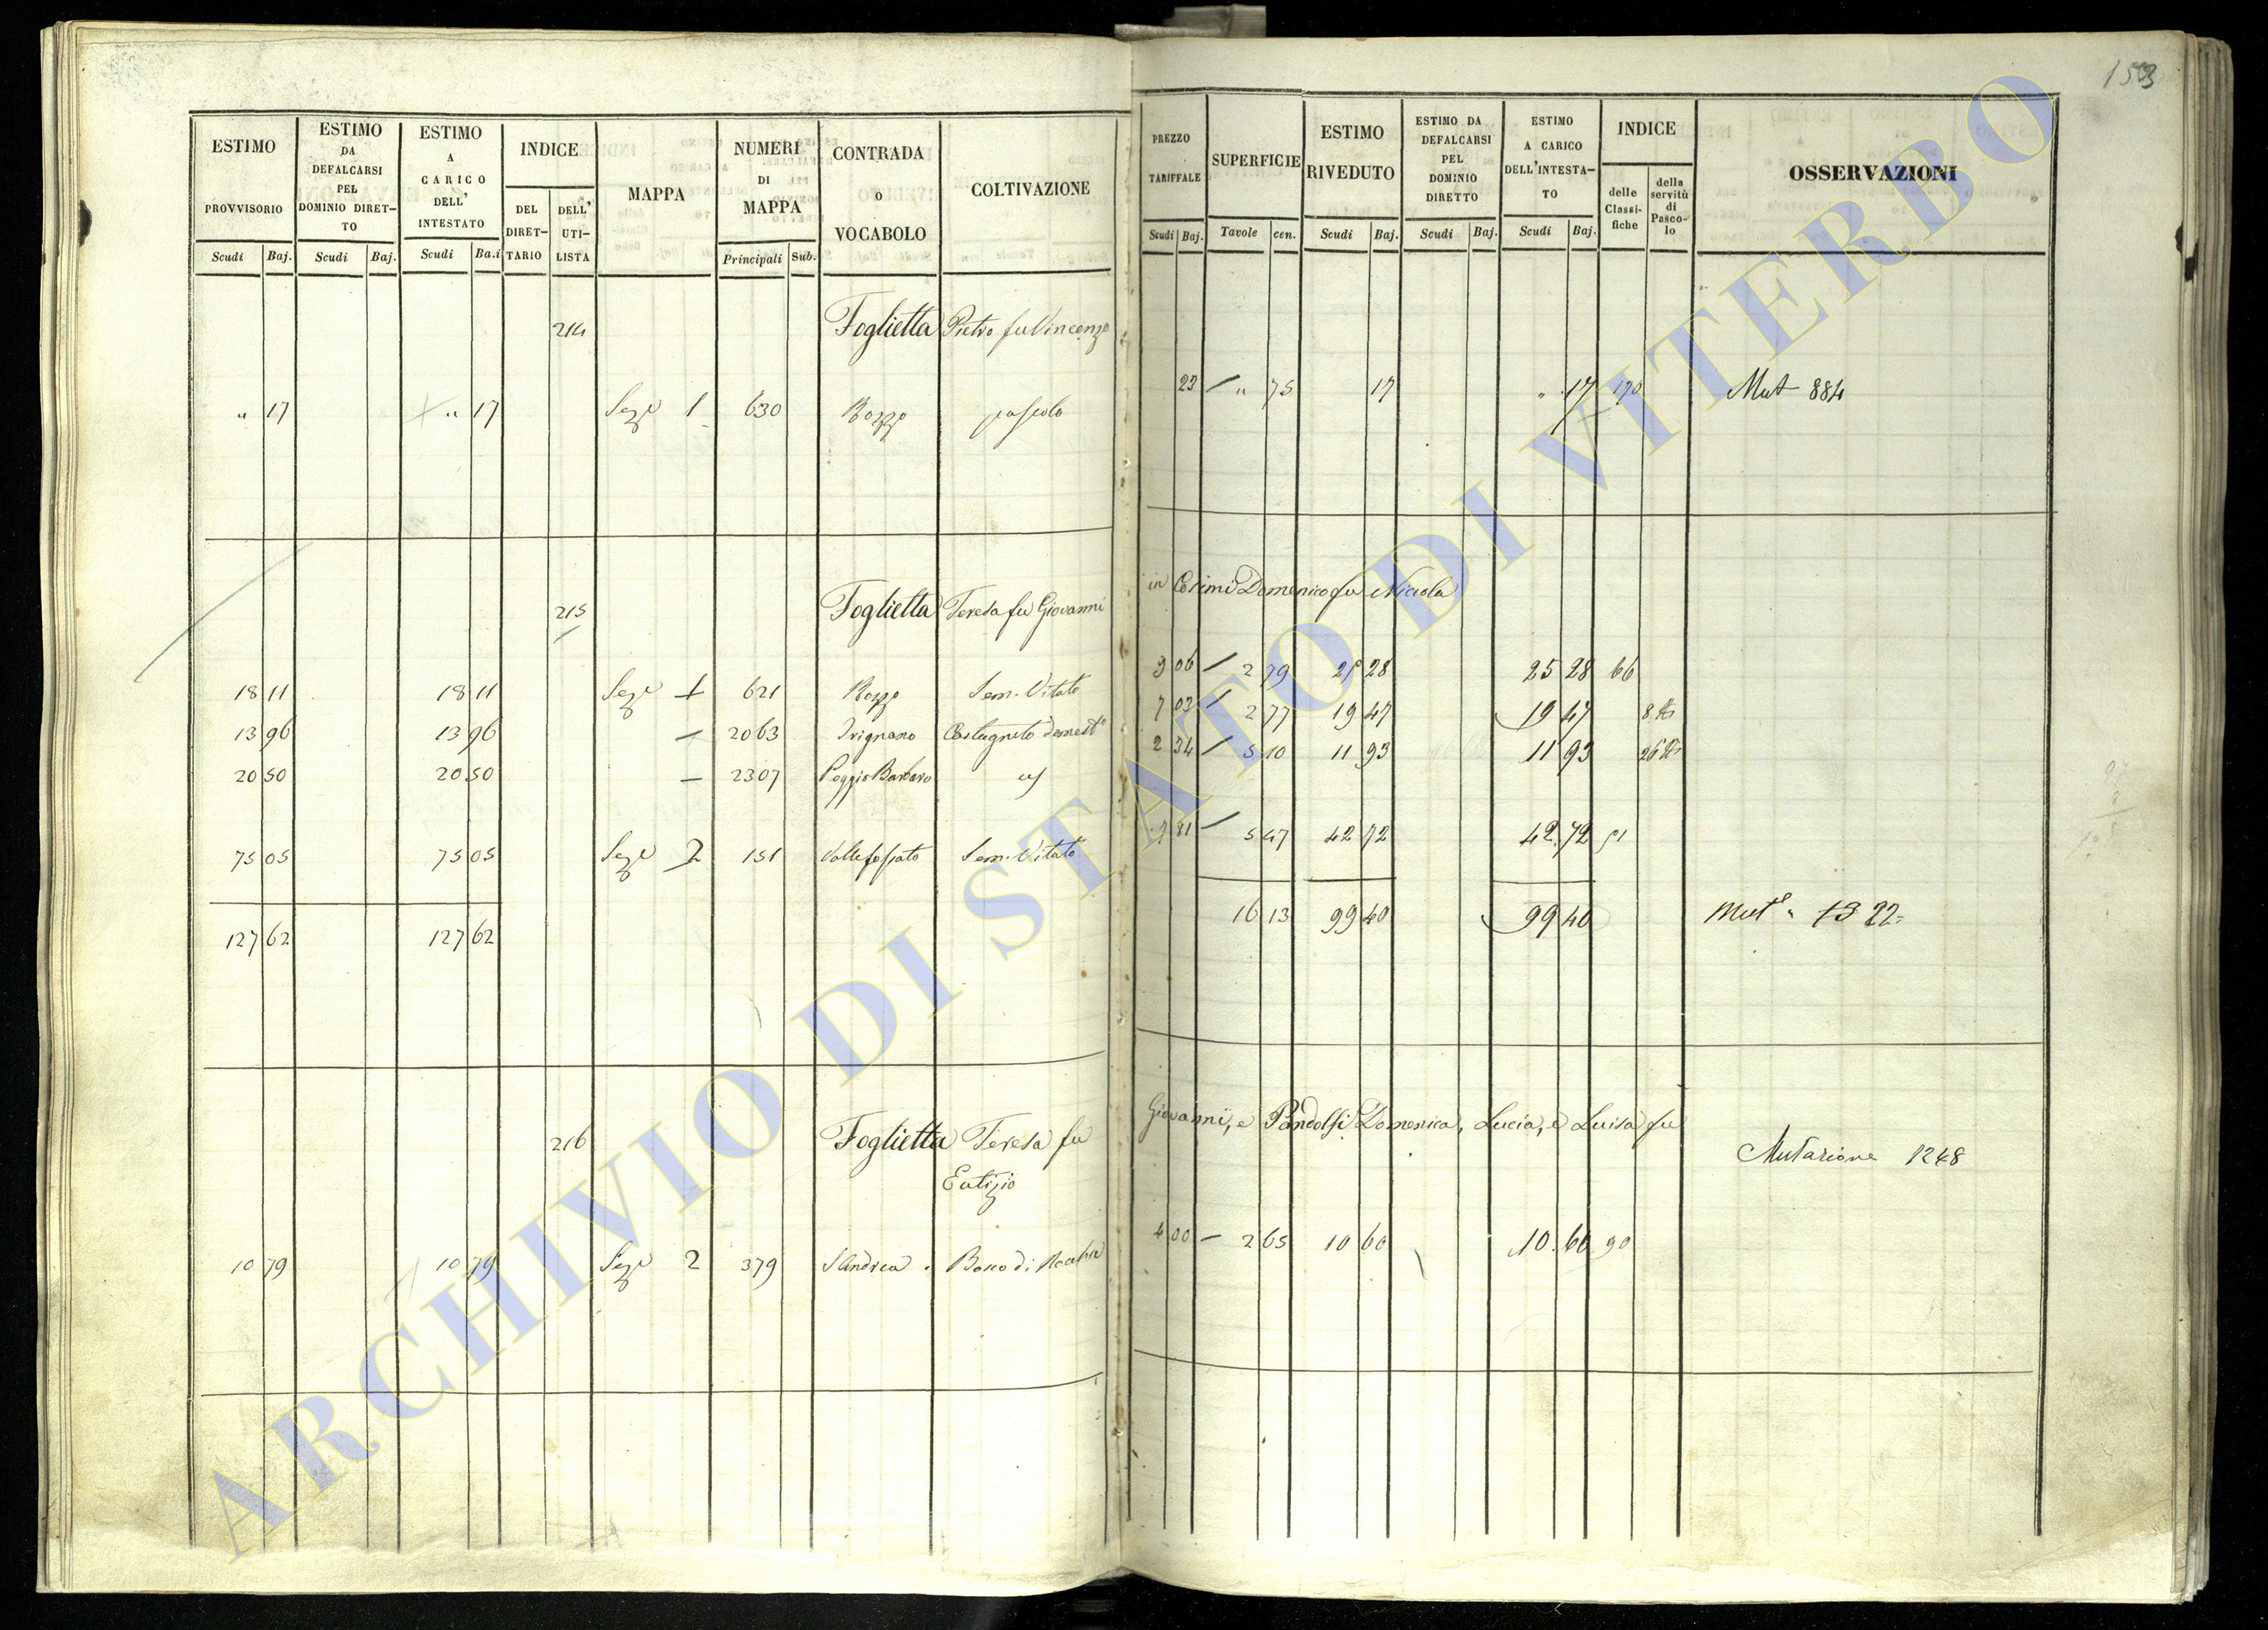 153
ESTIMO PROVVISORIO
ESTIMO DA DEFALCARSI PEL DOMINIO DIRET-TO
ESTIMO A CARICO DELL' INTESTATO
INDICE
DEL DIRET-TARIO
DELL' UTI-LISTA
MAPPA
NUMERI DI MAPPA
CONTRADA o VOCABOLO
COLTIVAZIONE
PREZZO TARIFFALE
SUPERFICIE
ESTIMO RIVEDUTO
ESTIMO DA DEFALCARSI PEL DOMINIO DIRETTO
ESTIMO A CARICO DELL'INTESTA-TO
INDICE
delle Classi-fiche
della servitù di Pasco-lo
OSSERVAZIONI
Scudi Baj. Scudi Baj. Scudi Ba.i Principali Sub.
Scudi Baj. Tavole cen. Scudi Baj. Scudi Baj. Scudi Baj.
214 Foglietta Pietro fu Vincenzo
" 17 " 17 Sez.e 1 630 Bozzo pascolo 23 " 75 17 " 17 170 Mut 884
215 Foglietta Teresa fu Giovanni in Cosimi Domenico fu Nicola
18 11 18 11 Sez.e 1 621 Bozzo Sem. Vitato 9 06 2 79 25 28 25 28 66
13 96 13 96 — 2063 Irignano Castagneto domest.o 7 03 2 77 19 47 19 47 8
20 50 20 50 — 2307 Poggio Barbaro id 2 34 5 10 11 93 11 93 26
75 05 75 05 Sez.e 2 151 Vallefossato Sem. Vitato 7 81 5 47 42 72 42 72 51
127 62 127 62 16 13 99 40 99 40 Mut.e " 1322
216 Foglietta Teresa fu Giovanni, e Pandolfi Domenica, Lucia, e Luisa fu
Eutizio
Mutazione 1248
10 79 10 79 Sez.e 2 379 S Andrea Bosco di 4 00 2 65 10 60 10 60 90
ARCHIVIO DI STATO DI VITERBO